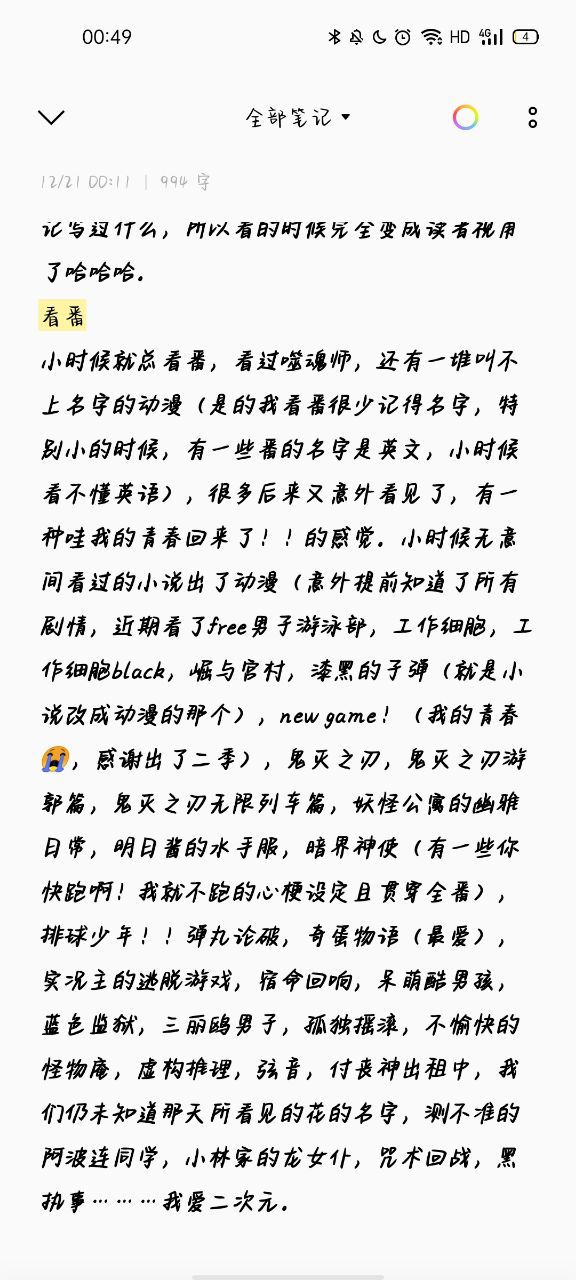 00:49
HD 4G 4
全部笔记
12/21 00:11 | 994 字
记写过什么，所以看的时候完全变成读者视角
了哈哈哈。
看番
小时候就总看番，看过噬魂师，还有一堆叫不
上名字的动漫（是的我看番很少记得名字，特
别小的时候，有一些番的名字是英文，小时候
看不懂英语），很多后来又意外看见了，有一
种哇我的青春回来了！！的感觉。小时候无意
间看过的小说出了动漫（意外提前知道了所有
剧情，近期看了free男子游泳部，工作细胞，工
作细胞black，崛与宫村，漆黑的子弹（就是小
说改成动漫的那个），new game！（我的青春
😭，感谢出了二季），鬼灭之刃，鬼灭之刃游
郭篇，鬼灭之刃无限列车篇，妖怪公寓的幽雅
日常，明日酱的水手服，暗界神使（有一些你
快跑啊！我就不跑的心梗设定且贯穿全番），
排球少年！！弹丸论破，奇蛋物语（最爱），
实况主的逃脱游戏，宿命回响，呆萌酷男孩，
蓝色监狱，三丽鸥男子，孤独摇滚，不愉快的
怪物庵，虚构推理，弦音，付丧神出租中，我
们仍未知道那天所看见的花的名字，测不准的
阿波连同学，小林家的龙女仆，咒术回战，黑
执事………我爱二次元。